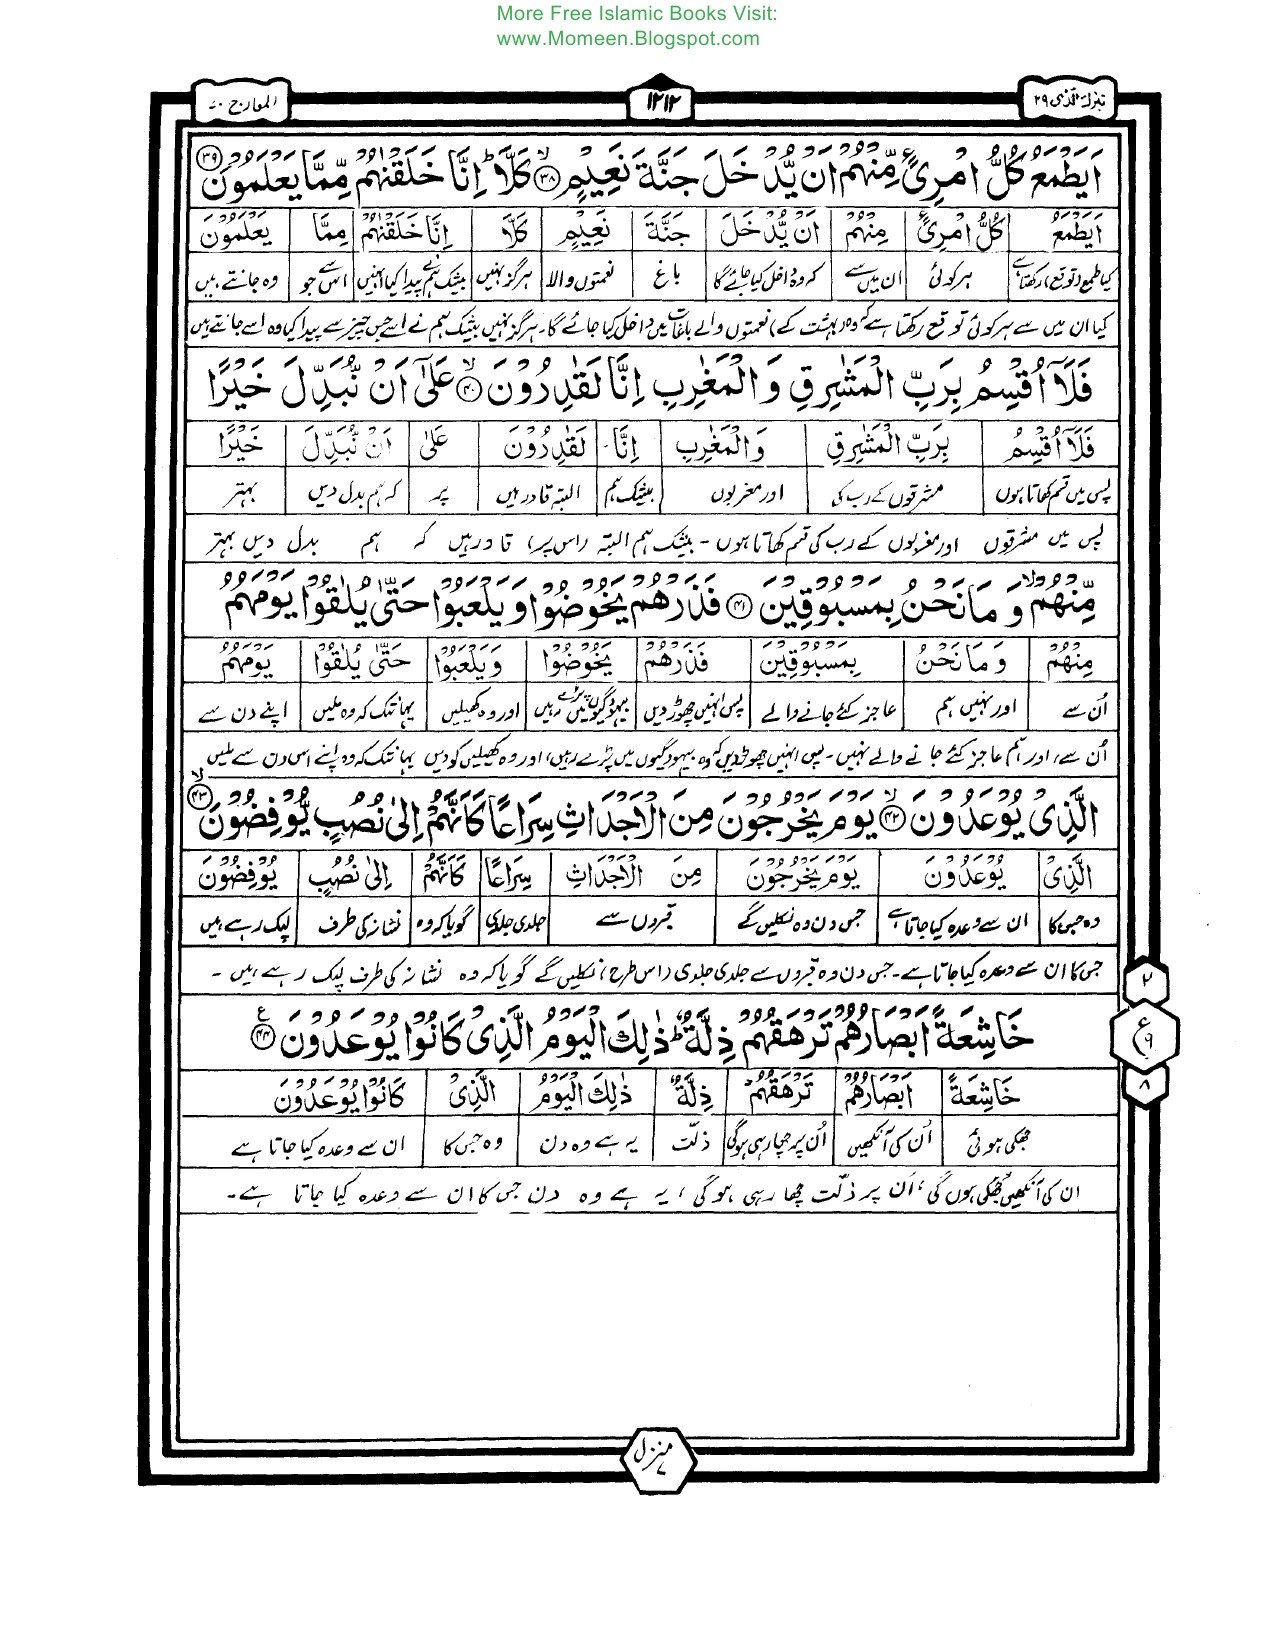 More Free Islamic Books Visit:
www.Momeen.Blogspot.com
تبٰرك الذى ۲۹
۱۲۱۲
المعارج ۷۰
اَيَطْمَعُ كُلُّ امْرِئٍ مِّنْهُمْ اَنْ يُّدْخَلَ جَنَّةَ نَعِيْمٍ ۳۸ كَلَّا ؕ اِنَّا خَلَقْنٰهُمْ مِّمَّا يَعْلَمُوْنَ ۳۹
اَيَطْمَعُ كُلُّ امْرِئٍ مِنْهُمْ اَنْ يُّدْخَلَ جَنَّةَ نَعِيْمٍ كَلَّا اِنَّا خَلَقْنٰهُمْ مِمَّا يَعْلَمُوْنَ
کیا طمع (توقع) رکھتا ہے ہر کوئی ان میں سے کہ وہ داخل کیا جائے گا باغ نعمتوں والا ہرگز نہیں بیشک ہم نے پیدا کیا انہیں اس سے جو وہ جانتے ہیں
کیا ان میں سے ہر کوئی توقع رکھتا ہے کہ وہ (بہشت کے) نعمتوں والے باغات میں داخل کیا جائے گا۔ ہرگز نہیں بیشک ہم نے اسے جس چیز سے پیدا کیا وہ اسے جانتے ہیں
فَلَاۤ اُقْسِمُ بِرَبِّ الْمَشٰرِقِ وَ الْمَغٰرِبِ اِنَّا لَقٰدِرُوْنَ ۴۰ عَلٰۤى اَنْ نُّبَدِّلَ خَيْرًا
فَلَاۤ اُقْسِمُ بِرَبِّ الْمَشٰرِقِ وَ الْمَغٰرِبِ اِنَّا لَقٰدِرُوْنَ عَلٰى اَنْ نُّبَدِّلَ خَيْرًا
پس میں قسم کھاتا ہوں مشرقوں کے رب کی اور مغربوں بیشک ہم البتہ قادر ہیں پر کہ ہم بدل دیں بہتر
پس میں مشرقوں اور مغربوں کے رب کی قسم کھاتا ہوں - بیشک ہم البتہ (اس پر) قادر ہیں کہ ہم بدل دیں بہتر
مِّنْهُمْ ۙ وَ مَا نَحْنُ بِمَسْبُوْقِيْنَ ۴۱ فَذَرْهُمْ يَخُوْضُوْا وَ يَلْعَبُوْا حَتّٰى يُلٰقُوْا يَوْمَهُمُ
مِنْهُمْ وَ مَا نَحْنُ بِمَسْبُوْقِيْنَ فَذَرْهُمْ يَخُوْضُوْا وَيَلْعَبُوْا حَتّٰى يُلٰقُوْا يَوْمَهُمُ
اُن سے اور نہیں ہم عاجز کئے جانے والے پس انہیں چھوڑ دیں بیہودگیوں میں پڑے رہیں اور وہ کھیلیں یہانتک کہ وہ ملیں اپنے دن سے
اُن سے، اور ہم عاجز کئے جانے والے نہیں - پس انہیں چھوڑ دیں کہ وہ بیہودگیوں میں پڑے رہیں، اور وہ کھیلیں کودیں یہانتک کہ وہ اپنے اس دن سے ملیں
الَّذِىْ يُوْعَدُوْنَ ۴۲ يَوْمَ يَخْرُجُوْنَ مِنَ الْاَجْدَاثِ سِرَاعًا كَاَنَّهُمْ اِلٰى نُصُبٍ يُّوْفِضُوْنَ ۴۳
الَّذِىْ يُوْعَدُوْنَ يَوْمَ يَخْرُجُوْنَ مِنَ الْاَجْدَاثِ سِرَاعًا كَاَنَّهُمْ اِلٰى نُصُبٍ يُوْفِضُوْنَ
وہ جس کا ان سے وعدہ کیا جاتا ہے جس دن وہ نکلیں گے قبروں سے جلدی جلدی گویا کہ وہ نشانہ کی طرف لپک رہے ہیں
جس کا ان سے وعدہ کیا جاتا ہے۔ جس دن وہ قبروں سے جلدی جلدی (اس طرح) نکلیں گے گویا کہ وہ نشانہ کی طرف لپک رہے ہیں -
خَاشِعَةً اَبْصَارُهُمْ تَرْهَقُهُمْ ذِلَّةٌ ؕ ذٰلِكَ الْيَوْمُ الَّذِىْ كَانُوْا يُوْعَدُوْنَ ۴۴ ع
خَاشِعَةً اَبْصَارُهُمْ تَرْهَقُهُمْ ذِلَّةٌ ذٰلِكَ الْيَوْمُ الَّذِىْ كَانُوْا يُوْعَدُوْنَ
جھکی ہوئی اُن کی آنکھیں اُن پر چھا رہی ہوگی ذلّت یہ ہے وہ دن وہ جس کا ان سے وعدہ کیا جاتا ہے
ان کی آنکھیں جھکی ہوں گی، اُن پر ذلّت چھا رہی ہو گی، یہ ہے وہ دن جس کا ان سے وعدہ کیا جاتا ہے۔
۲
ع ۹
۸
منزل ۷